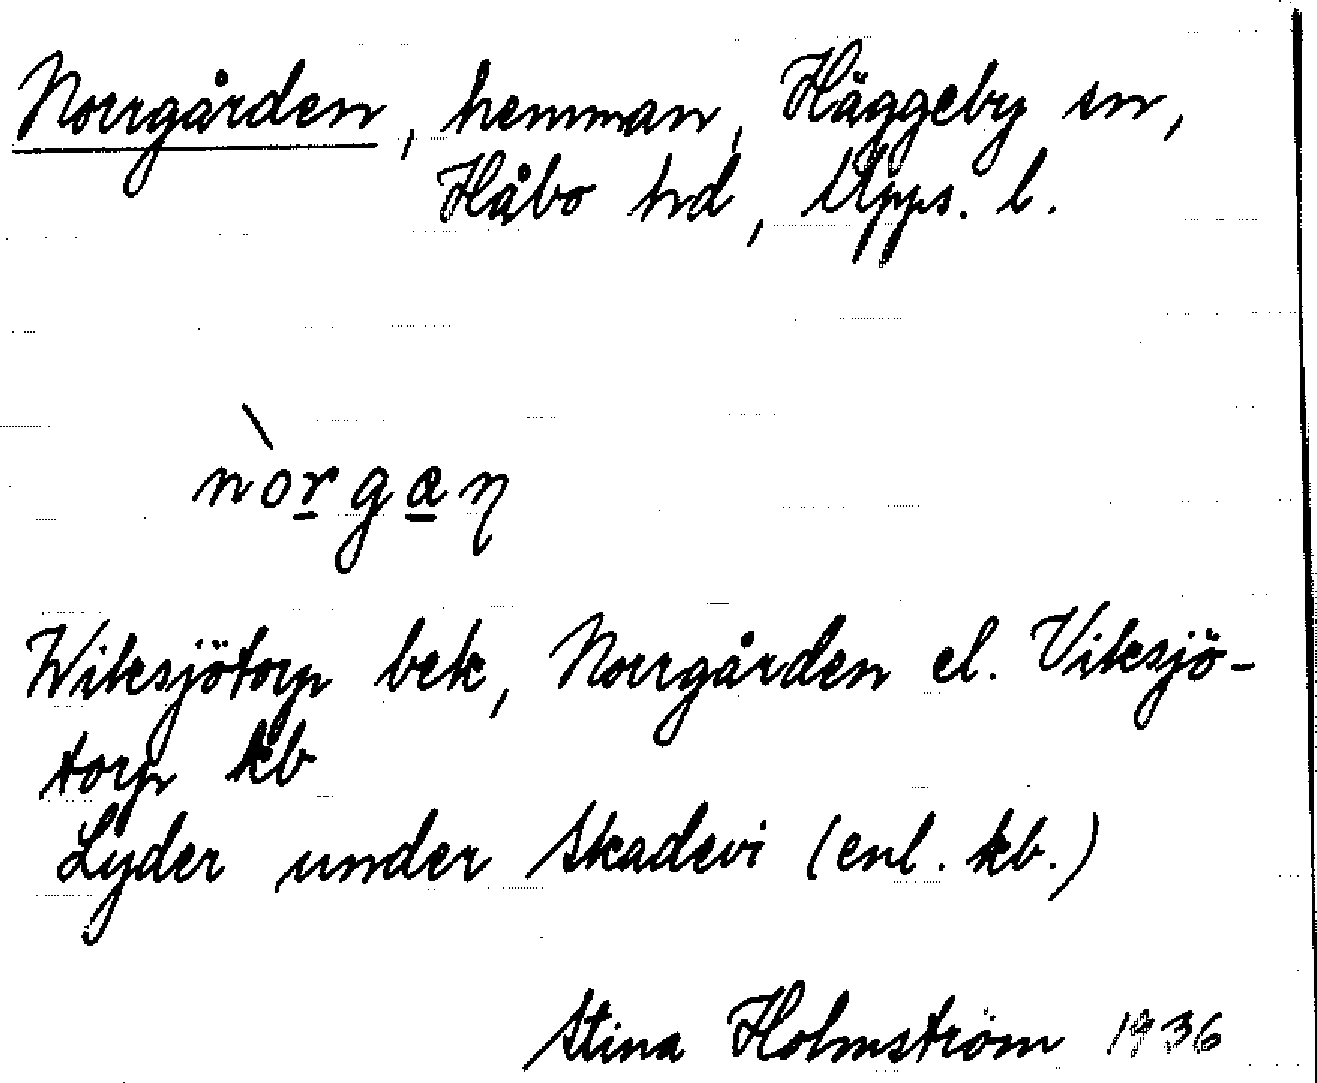 Norrgården, hemman, Häggeby sn,
Håbo hd, Upps. l.
nòrgaŋ
Wiksjötorp bek, Norrgården el. Viksjö-
torp kb
Lyder under Skadevi (enl. kb.)
Stina Holmström 1936